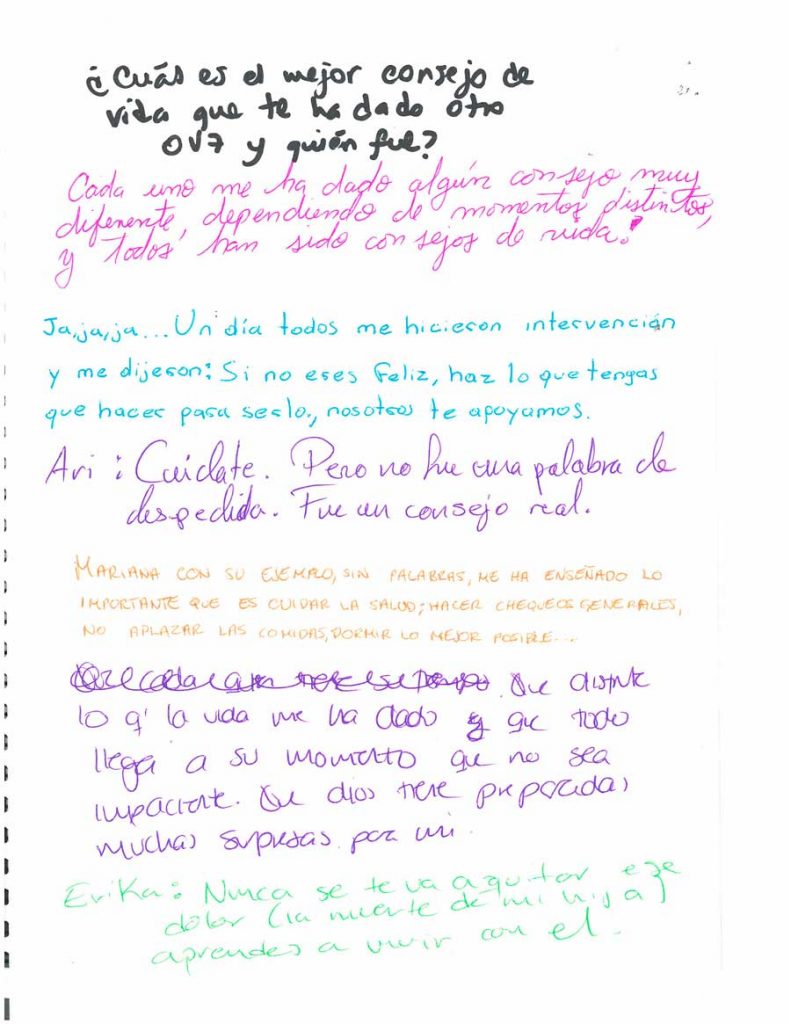 ¿Cuás es el mejor consejo de
vida que te ha dado otro
OV7 y quién fue?
Cada uno me ha dado algún consejo muy
diferente, dependiendo de momentos distintos,
y todos han sido consejos de vida!
Ja,ja,ja... Un día todos me hicieron intervención
y me dijeron: Si no eres feliz, haz lo que tengas
que hacer para serlo., nosotros te apoyamos.
Ari : Cuídate. Pero no fue una palabra de
despedida. Fue un consejo real.
MARIANA CON SU EJEMPLO, SIN PALABRAS, ME HA ENSEÑADO LO
IMPORTANTE QUE ES CUIDAR LA SALUD; HACER CHEQUEOS GENERALES,
NO APLAZAR LAS COMIDAS, DORMIR LO MEJOR POSIBLE...
Que disfrute
lo q' la vida me ha dado y que todo
llega a su momento que no sea
impaciente. Que dios tiene preparadas
muchas sorpresas por mi.
Erika: Nunca se te va a quitar ese
dolor (la muerte de mi hija)
aprendes a vivir con el.